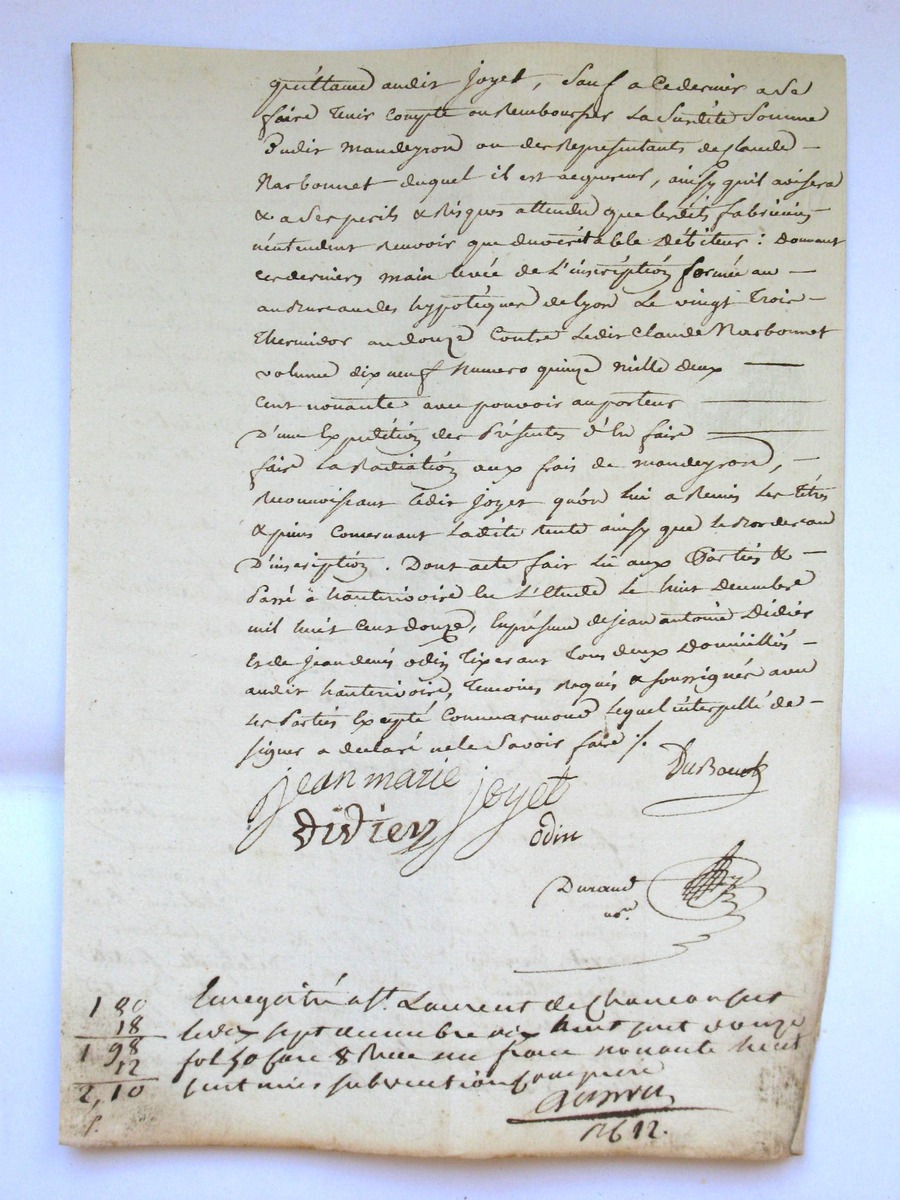 quittance audit Joyet, Sauf a Cedernier a Se
faire tenir compte ou Rembourser La Susdite Somme
Dudit mandeyron ou des Représentants de Claude
Narbonnet duquel il est acquereur, ainsy quil avisera
& a Ses perils & Risques attendu que lesdits fabriciens
n'entendent
que du véritable Débiteur : Donnant
ces derniers main levée de L'inscription formée au
au Bureau des hypotèques de Lyon Le vingt Trois
thermidor an douze Contre Ledit Claude Narbonnet
volume dix neuf Numero quinze Mille deux
Cent nonante avec pouvoir au porteur
D'une Expédition des Présentes d'En faire
faire La Radiation aux frais de mandeyron,
Reconnoissant Ledit Joyet qu'on lui a Remis Les titres
& pieces Concernant Ladite Rente ainsy que le Bordereau
D'inscription. Dont acte fait Lu aux Parties &
Passé a hauterivoire En L'Etude Le huit Decembre
mil huit Cent douze, En présence de jean antoine Didier
Et de Jean denis odin Tixerant Tous deux Domiciliés
audit hauterivoire, Temoins Requis & soussignés avec
Les Parties Excepté Commarmond Lequel interpellé de
signer a declaré ne le Savoir faire /.
jean marie joyet
DuBouch
didier
odin
Durand
no.re
1 80
18
1 98
12
2,10
Enregistré a St. Laurent de Chamousset
le dix sept decembre mil huit cent douze
fol 50 case 8 Reçu un franc nonante huit
centimes subvention comprise
1612.